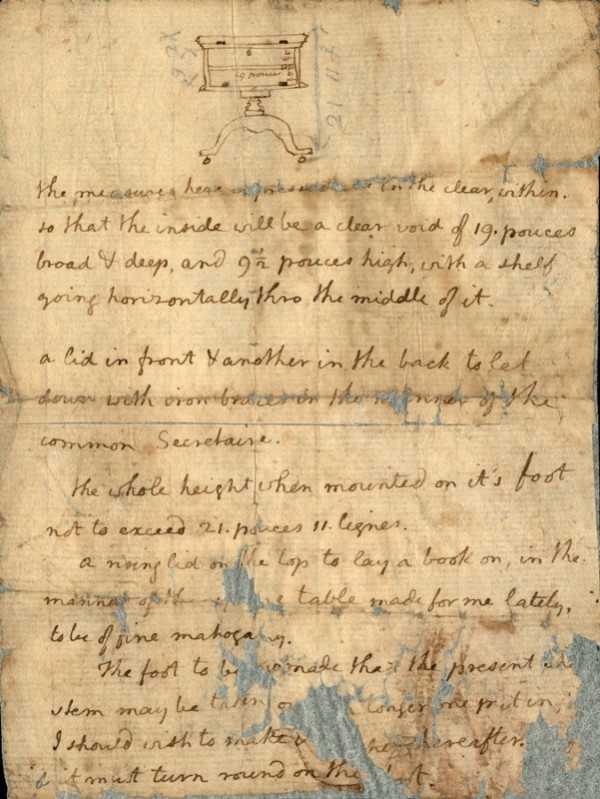 19 pouces
21 p 11 l
the measures here expressed are in the clear, within.
so that the inside will be a clear void of 19. pouces
broad & deep, and 9½ pouces high, with a shelf
going horizontally thro the middle of it.
a lid in front & another in the back to let
down with iron braces in the manner of the
common Secretaire.
the whole height when mounted on it's foot
not to exceed 21. pouces 11. lignes.
a rising lid on the top to lay a book on, in the
manner of the table made for me lately,
to be of fine mahogany.
The foot to be so made that the present
stem may be taken longer one put in, if
I should wish to make hereafter.
it must turn round on the foot.